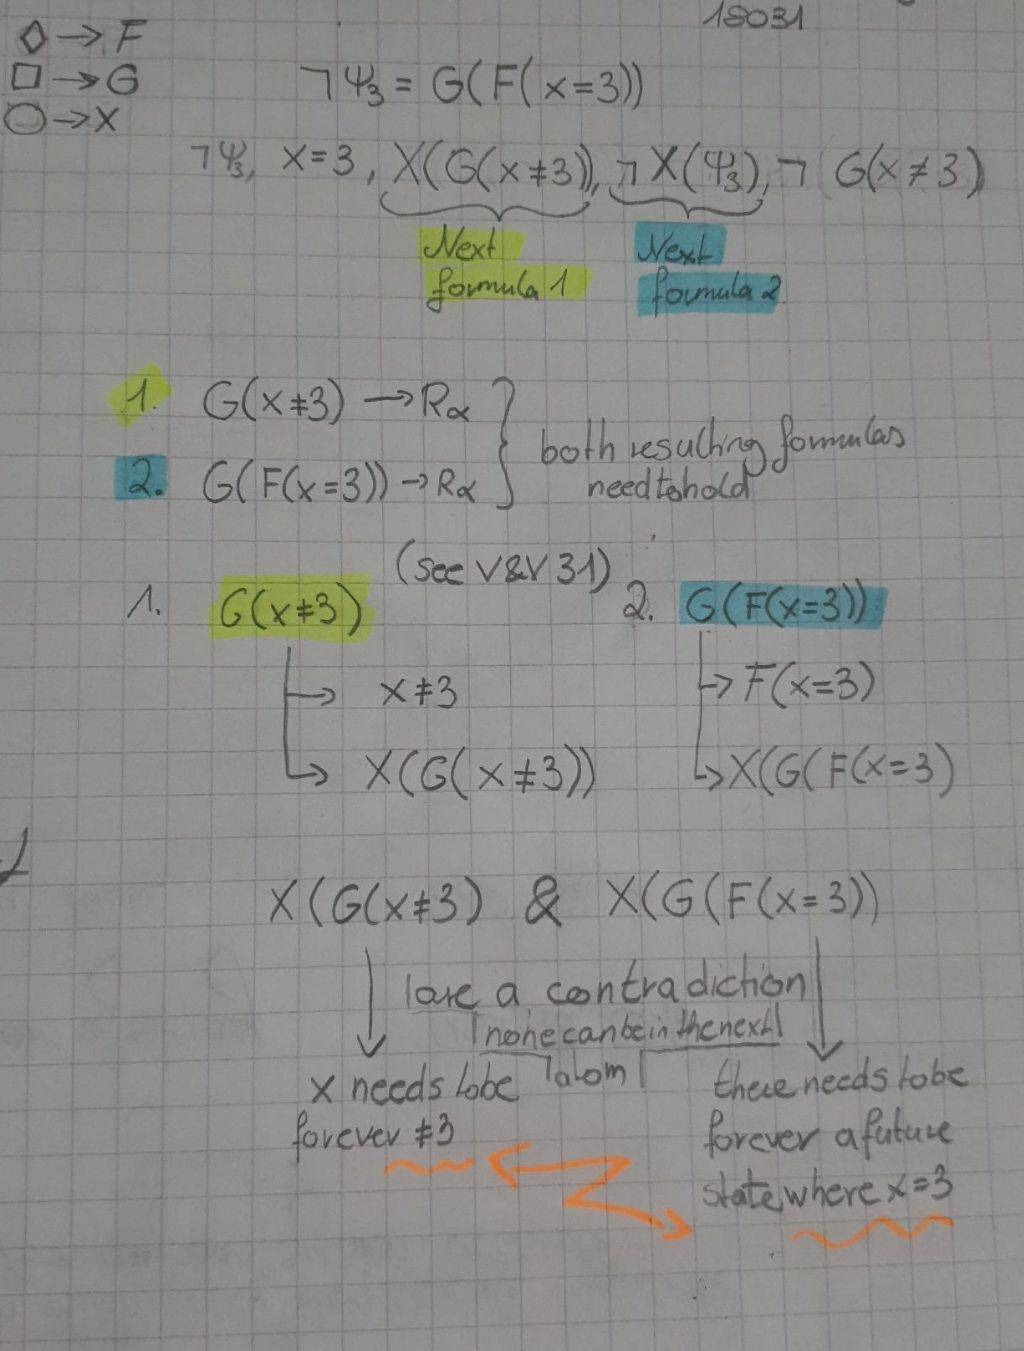 18031
◇ → F
□ → G
○ → X
¬Ψ₃ = G(F(x=3))
¬Ψ₃, X=3, X(G(x≠3)), ¬X(Ψ₃), ¬ G(x≠3)
Next formula 1
Next formula 2
1. G(x≠3) → Rα
2. G(F(x=3)) → Rα
both resulting formulas
need to hold
(see V&V 31)
1. G(x≠3)
2. G(F(x=3))
x≠3
F(x=3)
X(G(x≠3))
X(G(F(x=3)
X(G(x≠3) & X(G(F(x=3))
are a contradiction
none can be in the next
atom
x needs to be
forever ≠3
there needs to be
forever a future
state where x=3